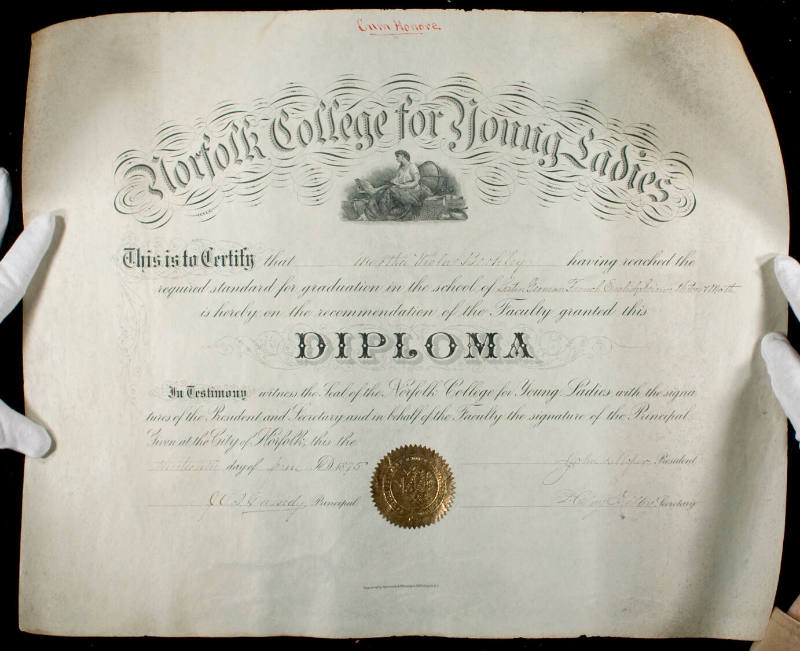 Cum Honore
Norfolk College for Young Ladies
This is to Certify that Martha having reached the
required standard for graduation in the school of Latin German French English
is hereby on the recommendation of the Faculty granted this
DIPLOMA
In Testimony witness the Seal of the Norfolk College for Young Ladies with the signa
tures of the President and Secretary and in behalf of the Faculty the signature of the Principal.
Given at the City of Norfolk, this the
day of June A.D. 1895
President
Principal
Secretary